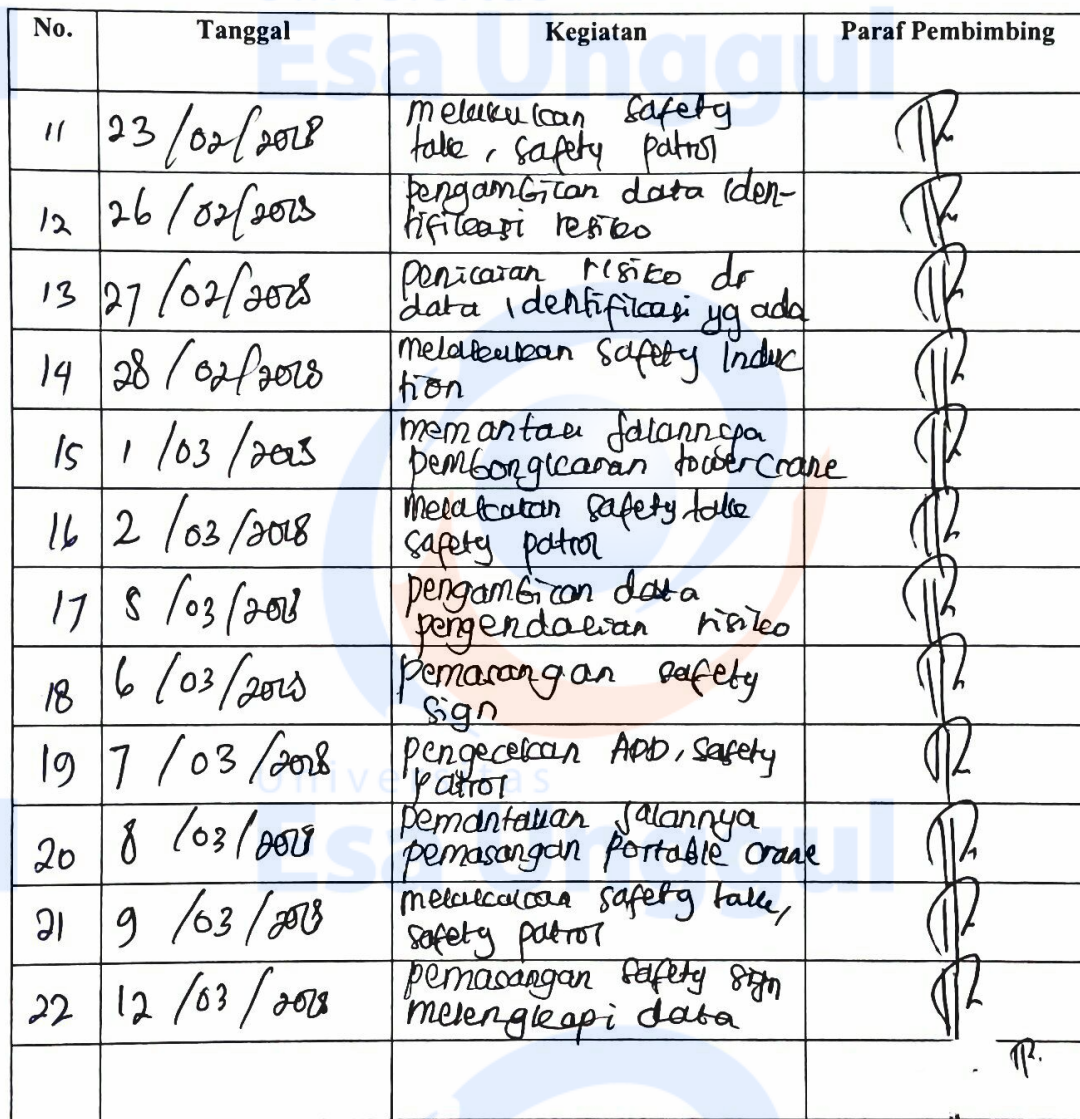 Esa Unggul
No. Tanggal Kegiatan Paraf Pembimbing
11 23/02/2018 melakukan safety
talk, safety patrol
12 26/02/2018 pengambilan data iden-
tifikasi resiko
13 27/02/2018 penilaian risiko dr
data identifikasi yg ada
14 28/02/2018 melakukan safety induc
tion
15 1/03/2018 memantau jalannya
pembongkaran tower crane
16 2/03/2018 melakukan safety talk
safety patrol
17 5/03/2018 pengambilan data
pengendalian risiko
18 6/03/2018 pemasangan safety
sign
19 7/03/2018 pengecekan APD, safety
patrol
Universitas
20 8/03/2018 pemantauan jalannya
pemasangan portable crane
Esa Unggul
21 9/03/2018 melakukan safety talk,
safety patrol
22 12/03/2018 pemasangan safety sign
melengkapi data